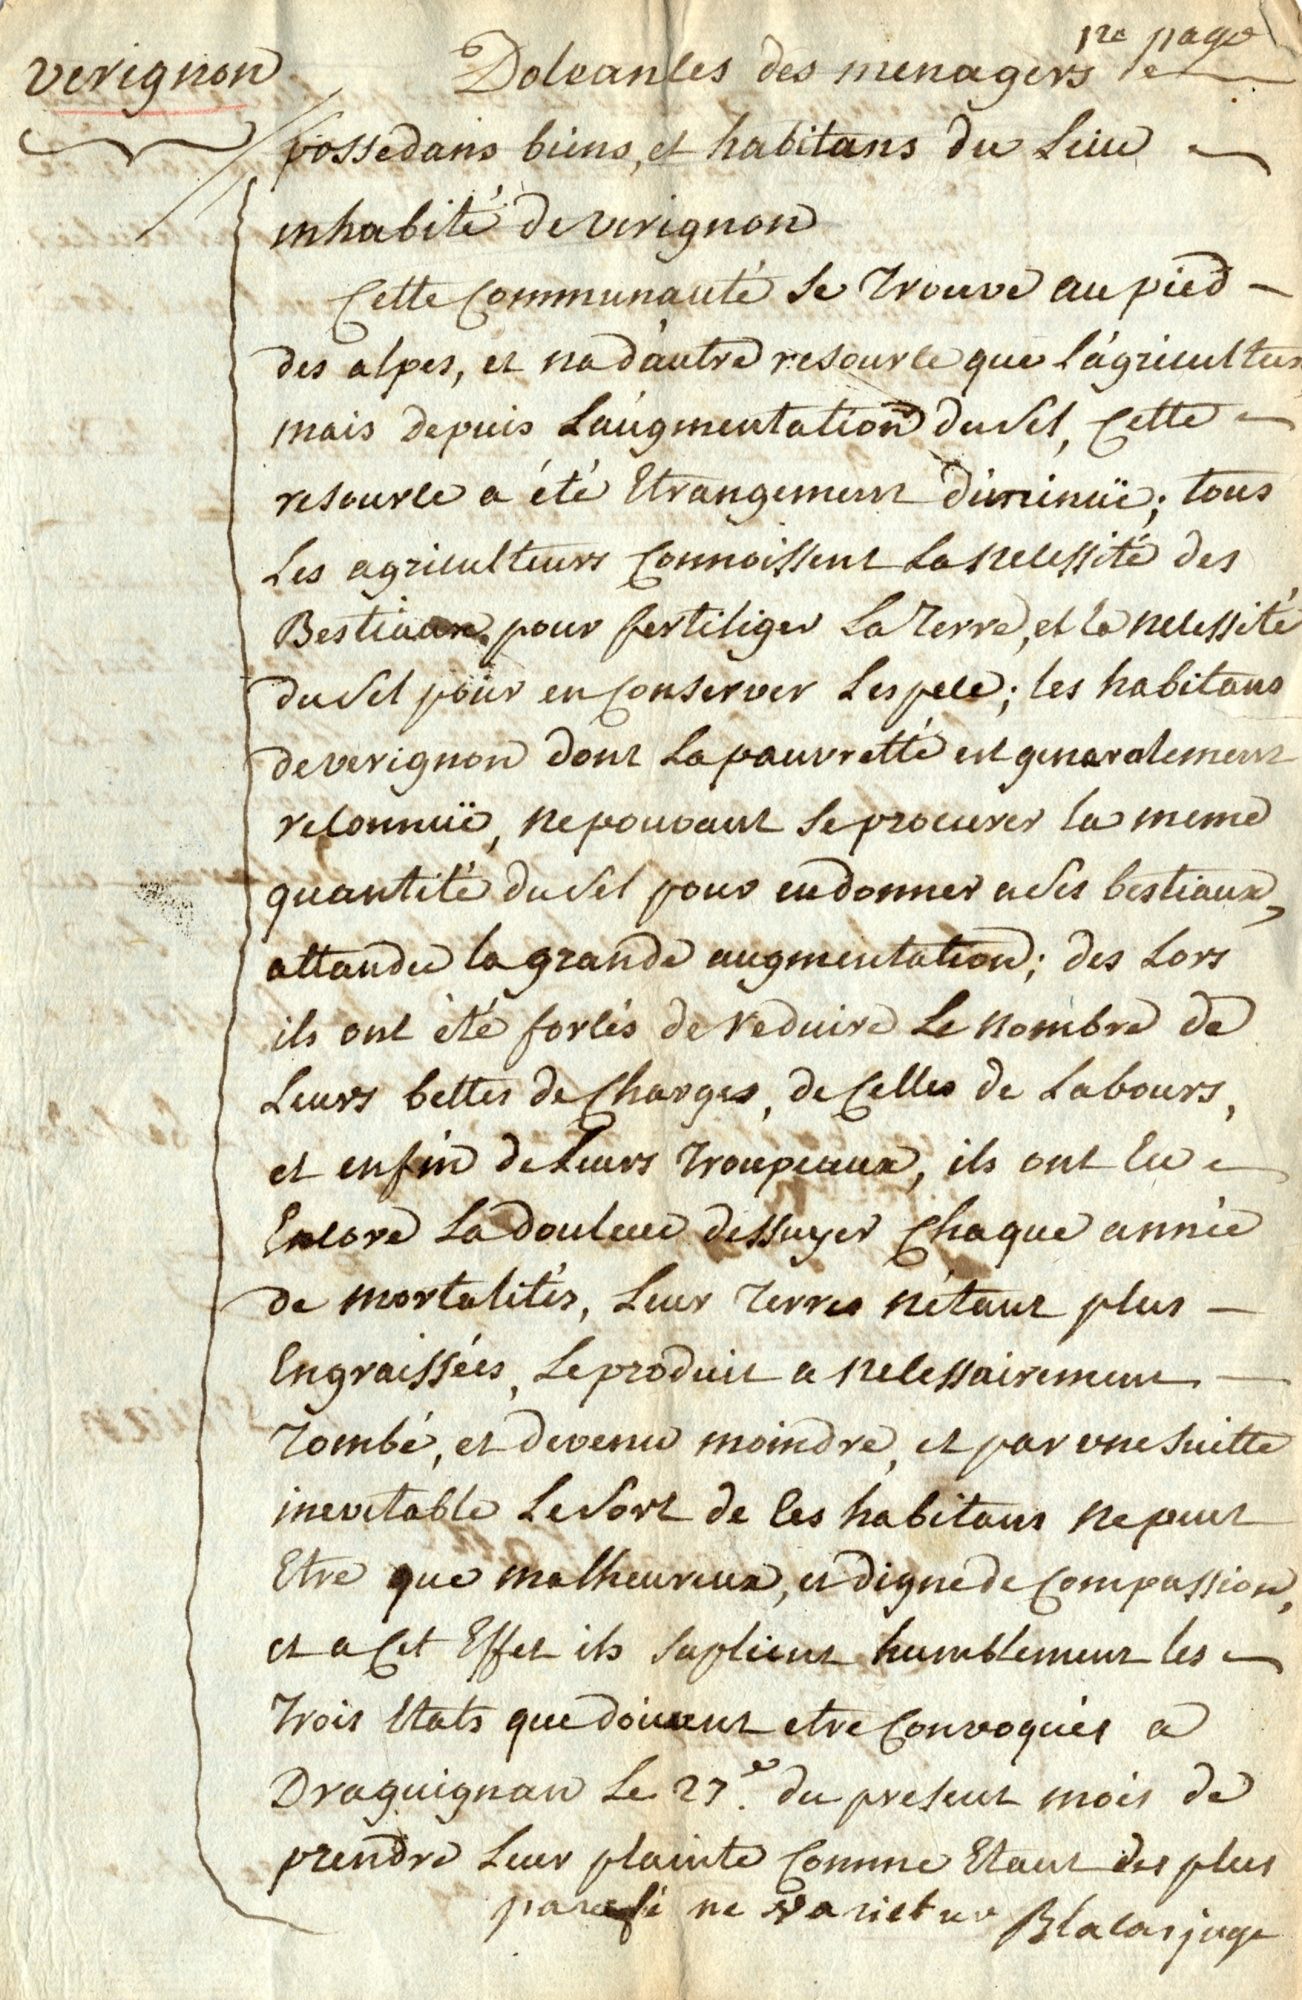 pre page
verignon
Doleances des menagers
possedans biens, et habitans du Lieu
inhabité de verignon
Cette Communauté se trouve au pied
des alpes, et na dautre resource que Lágricultur
mais depuis Laúgmentation du sel, Cette
resource a été Etrangement diminuïe; tous
Les agriculteurs Connoissent La necessité des
Bestiaux pour fertiliger La terre, et la necessité
du sel pour en Conserver Lespece; les habitans
de verignon dont La pauvretté est generalement
reconnuïe, ne pouvant se procurer la meme
quantité du sel pour en donner a ses bestiaux,
attandu la grande augmentation; des Lors
ils ont été forcés de reduire Le nombre de
Leurs bettes de Charges, de Celles de Labours,
et enfin de Leurs troupeaux, ils ont Eu
Encore La douleur dessuyer Chaque année
de mortalités, Leur terres nétant plus
Engraissées, Le produit a necessairement
tombé, et devenu moindre, et par une suitte
inevitable Le sort de Ces habitans ne peut
Etre que malheureux, et digne de Compassion,
et a Cet Effet ils suplient humblement les
trois Etats que doivent etre Convoqués a
Draguignan Le 27e. du present mois de
prendre Leur plainte Comme Etant des plus
paraffé ne varietur Blacas juge